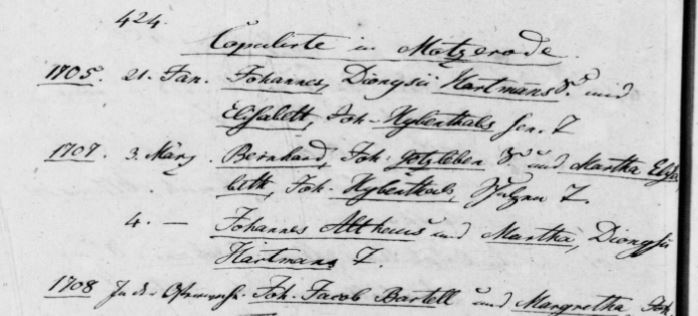 424.
Copulirte in Motzerode.
1705. 21. Jan. Johannes, Dionysii Hartmans S. und
Elisabeth, Joh. Hybenthals sen. T
1707. 3. März. Bernhard, Joh. Gotzleben S. und Martha Elisa
beth, Joh. Hybenthals, T.
4. — Johannes Altheus und Martha, Dionysii
Hartmans T.
1708 In der Joh. Jacob Bartell und Margretha Joh.